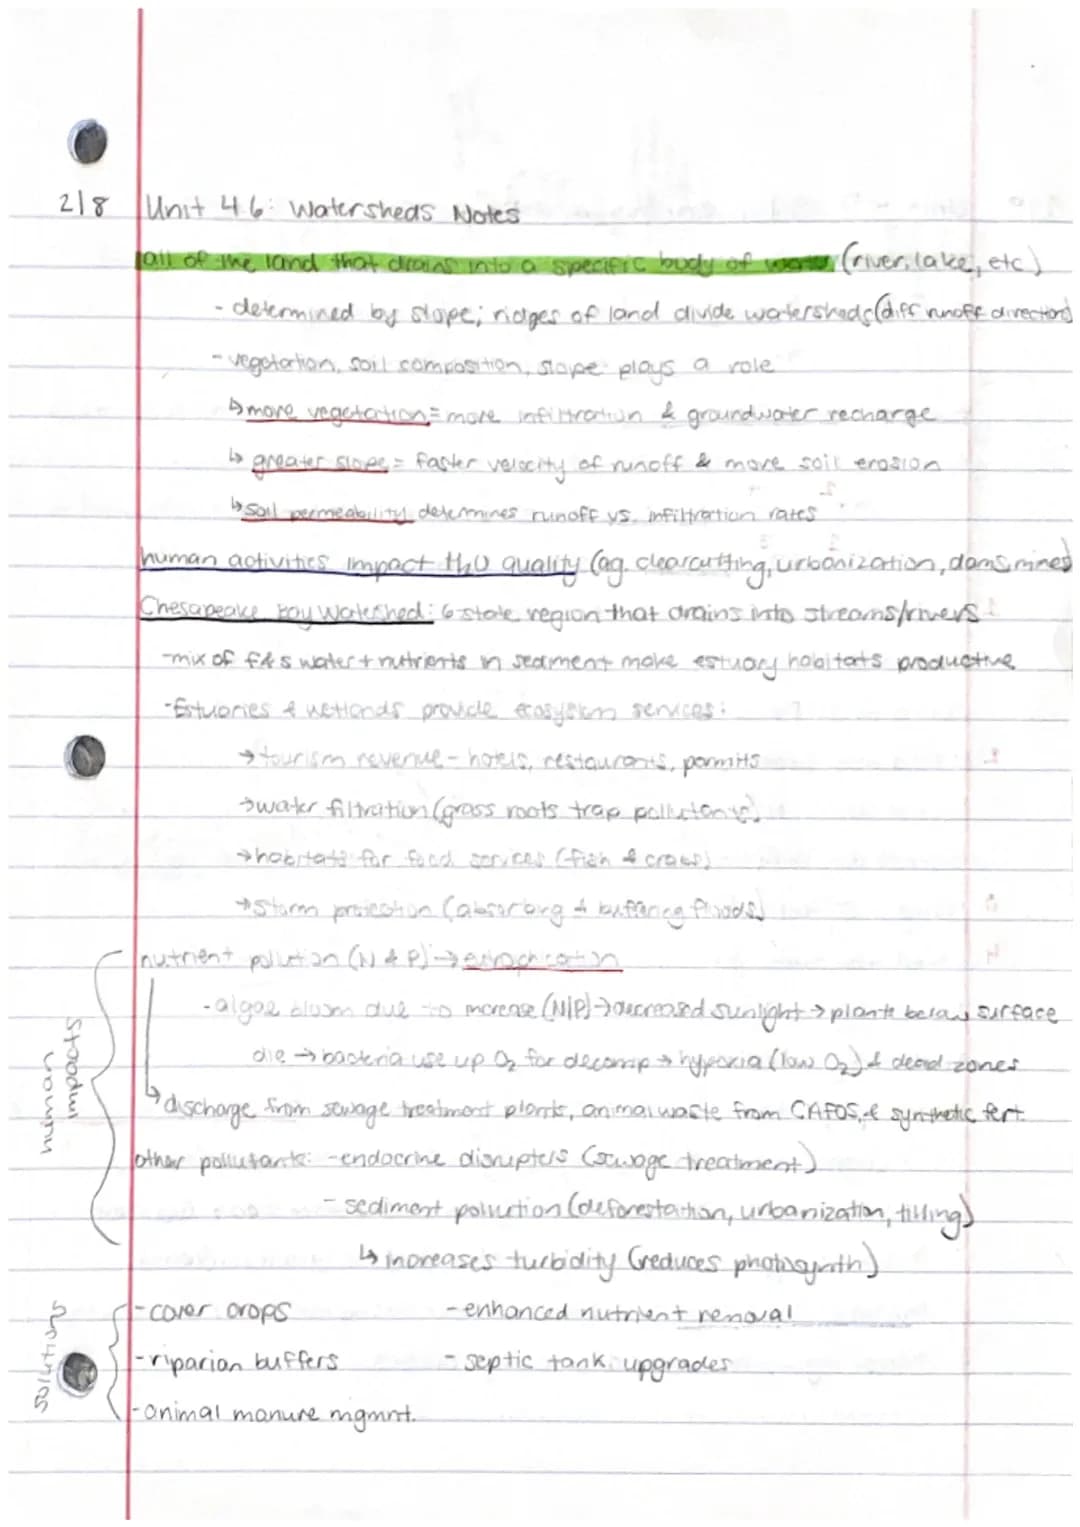 2/8 Unit 4.6: Watersheds Notes
all of the land that drains into a specific body of water (river, lake, etc)
- determined by slope; ridges of land divide watersheds (diff runoff directions)
- vegetation, soil composition, slope plays a role
↳ more vegetation = more infiltration & groundwater recharge
↳ greater slope = faster velocity of runoff & more soil erosion
↳ soil permeability determines runoff vs. infiltration rates
human activities impact H₂O quality (ag. clearcutting, urbanization, dams, mines)
Chesapeake Bay Watershed: 6 state region that drains into streams/rivers
- mix of f & s water + nutrients in sediment make estuary habitats productive
- Estuaries & wetlands provide ecosystem services:
→ tourism revenue - hotels, restaurants, permits
→ water filtration (grass roots trap pollutants)
→ habitats for food services (fish & crabs)
→ Storm protection (absorbing & buffering floods)
human impacts
nutrient pollution (N & P) → eutrophication
- algae bloom due to increase (N/P) → decreased sunlight → plants below surface
die → bacteria use up O₂ for decomp → hypoxia (low O₂) & dead zones
↳ discharge from sewage treatment plants, animal waste from CAFOS, & synthetic fert.
other pollutants: - endocrine disrupters (sewage treatment)
- sediment pollution (deforestation, urbanization, tilling)
↳ increases turbidity (reduces photosynth)
solutions
- cover crops - enhanced nutrient removal
- riparian buffers - septic tank upgrades
- animal manure mgmnt.